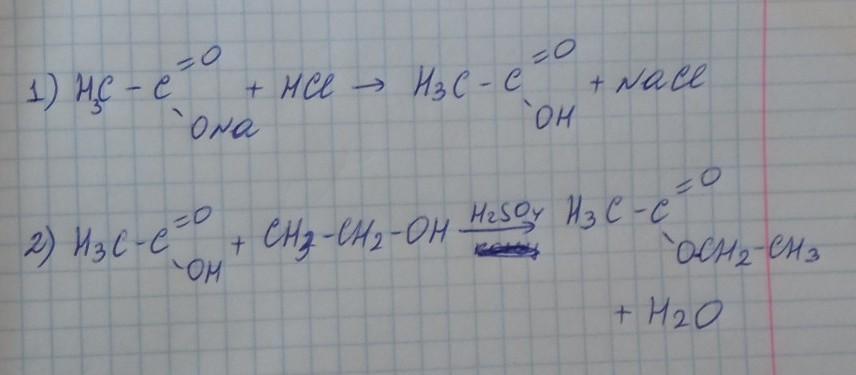 1) H₃C - C =O \ ONa + HCl → H₃C - C =O \ OH + NaCl
2) H₃C - C =O \ OH + CH₃-CH₂-OH H₂SO₄ → H₃C - C =O \ OCH₂-CH₃
+ H₂O